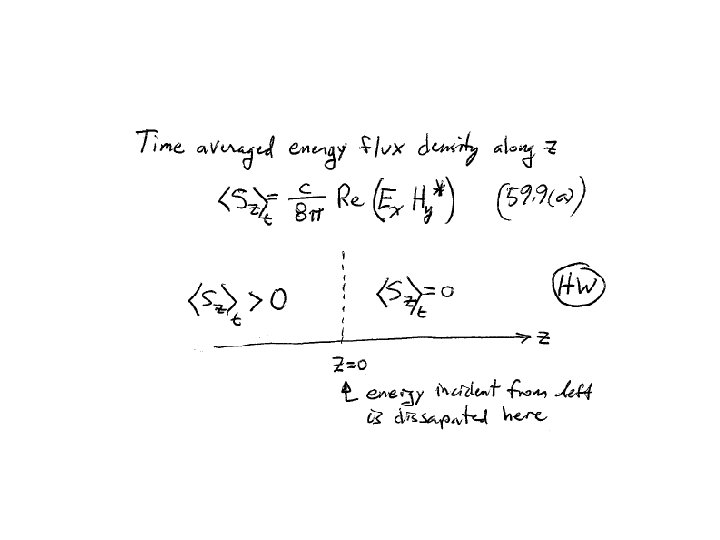 Time averaged energy flux density along z
⟨S_z⟩_t = c/8π Re (E_x H_y*) (59.9(a))
⟨S_z⟩_t > 0 ⟨S_z⟩_t = 0 HW
z
z=0
energy incident from left
is dissapated here